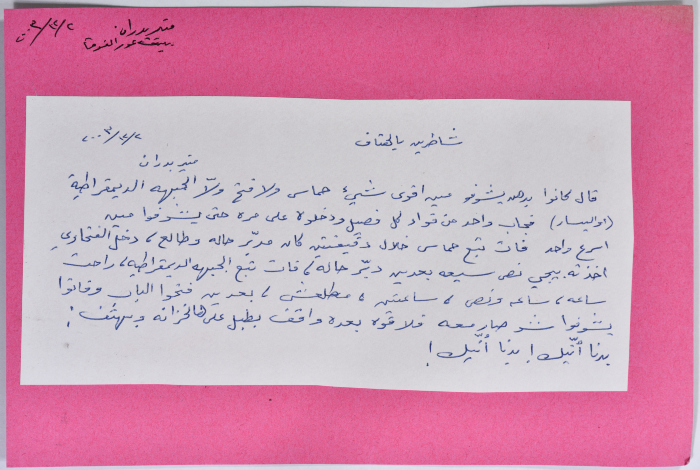 منير بدران
٢/٢/٢٠٠٣
شاطرين بالهتاف
٢/٢/٢٠٠٣
منير بدران
قال كانوا بدهن يشوفو مين اقوى شيء حماس ولا فتح ولّا الجبهه الديمقراطية
(اواليسار) فجاب واحد من قواد كل فصيل ودخلوه على مره حتى يشوفوا مين
اسرع واحد فات تبع حماس خلال دقيقتين كان مدبّر حاله وطالع، دخل الفتحاوي
اخذته بيجي نص سيعه بعدين دبّر حاله، فات تبع الجبهه الديمقراطيه، راحت
ساعه، ساعه ونص، ساعتين، مطلعش، بعدين فتحوا الباب وفاتوا
يشوفوا شو صار معه فلاقوه بعده واقف بطبل على هالخزانه وبيهتف:
بدنا أنّيك! بدنا أنّيك!